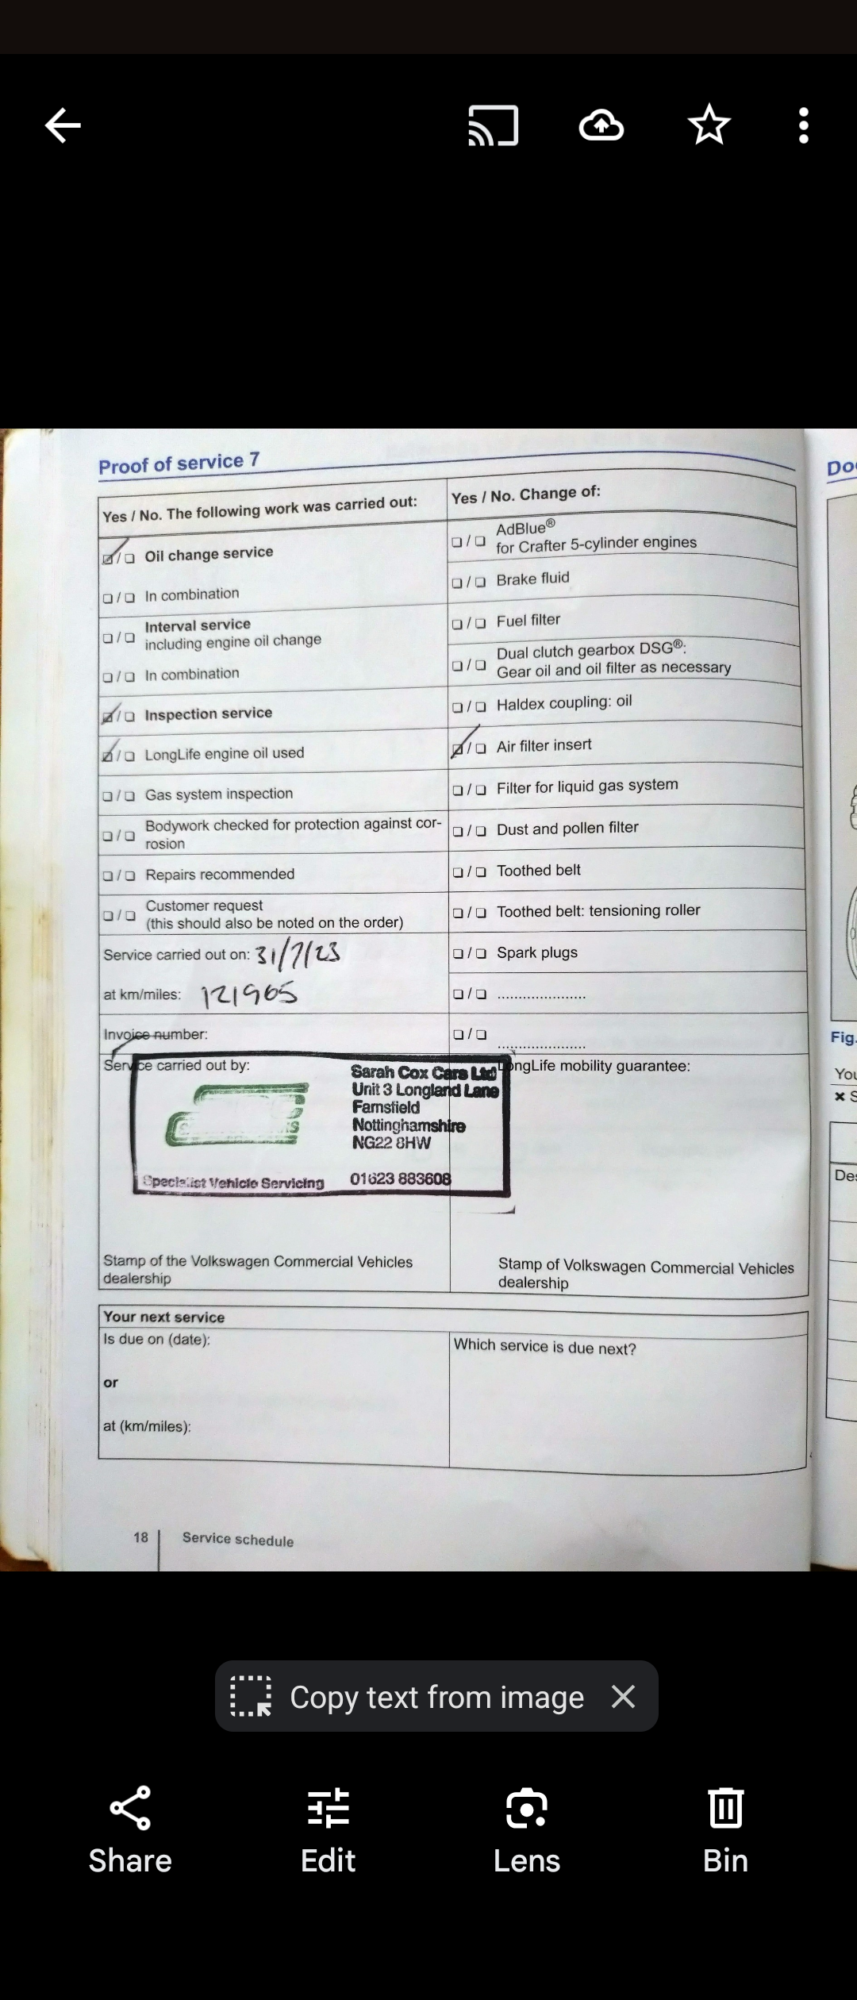 Proof of service 7
Yes / No. The following work was carried out:
Oil change service
In combination
Interval service
including engine oil change
In combination
Inspection service
LongLife engine oil used
Gas system inspection
Bodywork checked for protection against cor-
rosion
Repairs recommended
Customer request
(this should also be noted on the order)
Service carried out on: 31/7/23
at km/miles: 121965
Invoice number:
Service carried out by:
Sarah Cox Cars Ltd
Unit 3 Longland Lane
Farnsfield
Nottinghamshire
NG22 8HW
Specialist Vehicle Servicing 01623 883608
Stamp of the Volkswagen Commercial Vehicles
dealership
Yes / No. Change of:
AdBlue®
for Crafter 5-cylinder engines
Brake fluid
Fuel filter
Dual clutch gearbox DSG®:
Gear oil and oil filter as necessary
Haldex coupling: oil
Air filter insert
Filter for liquid gas system
Dust and pollen filter
Toothed belt
Toothed belt: tensioning roller
Spark plugs
LongLife mobility guarantee:
Stamp of Volkswagen Commercial Vehicles
dealership
Your next service
Is due on (date):
or
at (km/miles):
Which service is due next?
18 Service schedule
Fig.
Copy text from image
Share
Edit
Lens
Bin